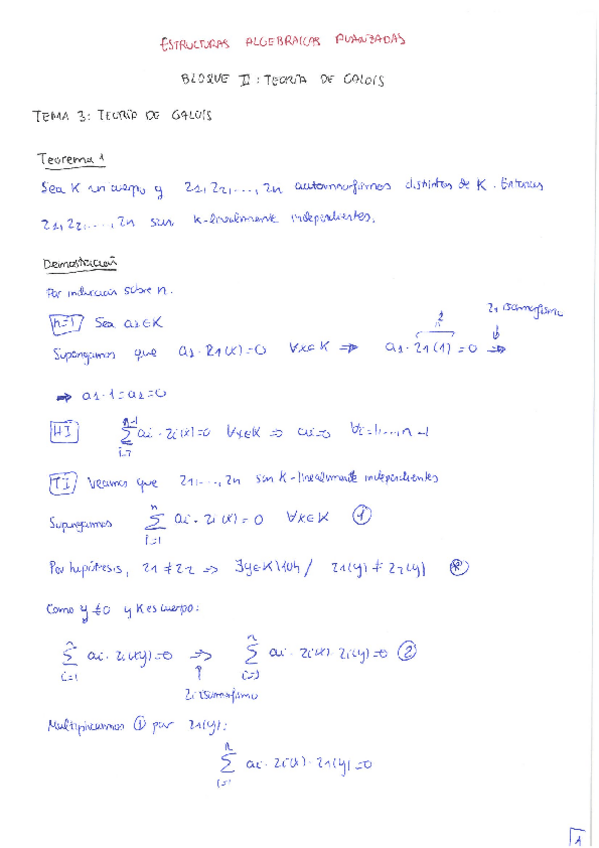 ESTRUCTURAS ALGEBRAICAS AVANZADAS
BLOQUE II: TEORÍA DE GALOIS
TEMA 3: TEORÍA DE GALOIS
Teorema 1
Sea K un cuerpo y τ1, τ2, ..., τn automorfismos distintos de K. Entonces
τ1, τ2, ..., τn son K-linealmente independientes.
Demostración
Por inducción sobre n.
n=1 Sea a1 ∈ K
1 τ1 isomorfismo
Supongamos que a1 · τ1(x) = 0 ∀x∈K ⇒ a1 · τ1(1) = 0 ⇒
⇒ a1 · 1 = a1 = 0
HI ∑_{i=1}^{n-1} ai · τi(x) = 0 ∀x∈K ⇒ ai = 0 ∀i = 1, ..., n-1
TI Veamos que τ1, ..., τn son K-linealmente independientes
Supongamos ∑_{i=1}^{n} ai · τi(x) = 0 ∀x∈K ①
Por hipótesis, τ1 ≠ τ2 ⇒ ∃y∈K\{0} / τ1(y) ≠ τ2(y) (*)
Como y ≠ 0 y K es cuerpo:
∑_{i=1}^{n} ai · τi(xy) = 0 ⇒ ∑_{i=1}^{n} ai · τi(x) · τi(y) = 0 ②
τi isomorfismo
Multiplicamos ① por τ1(y):
∑_{i=1}^{n} ai · τi(x) · τ1(y) = 0
1